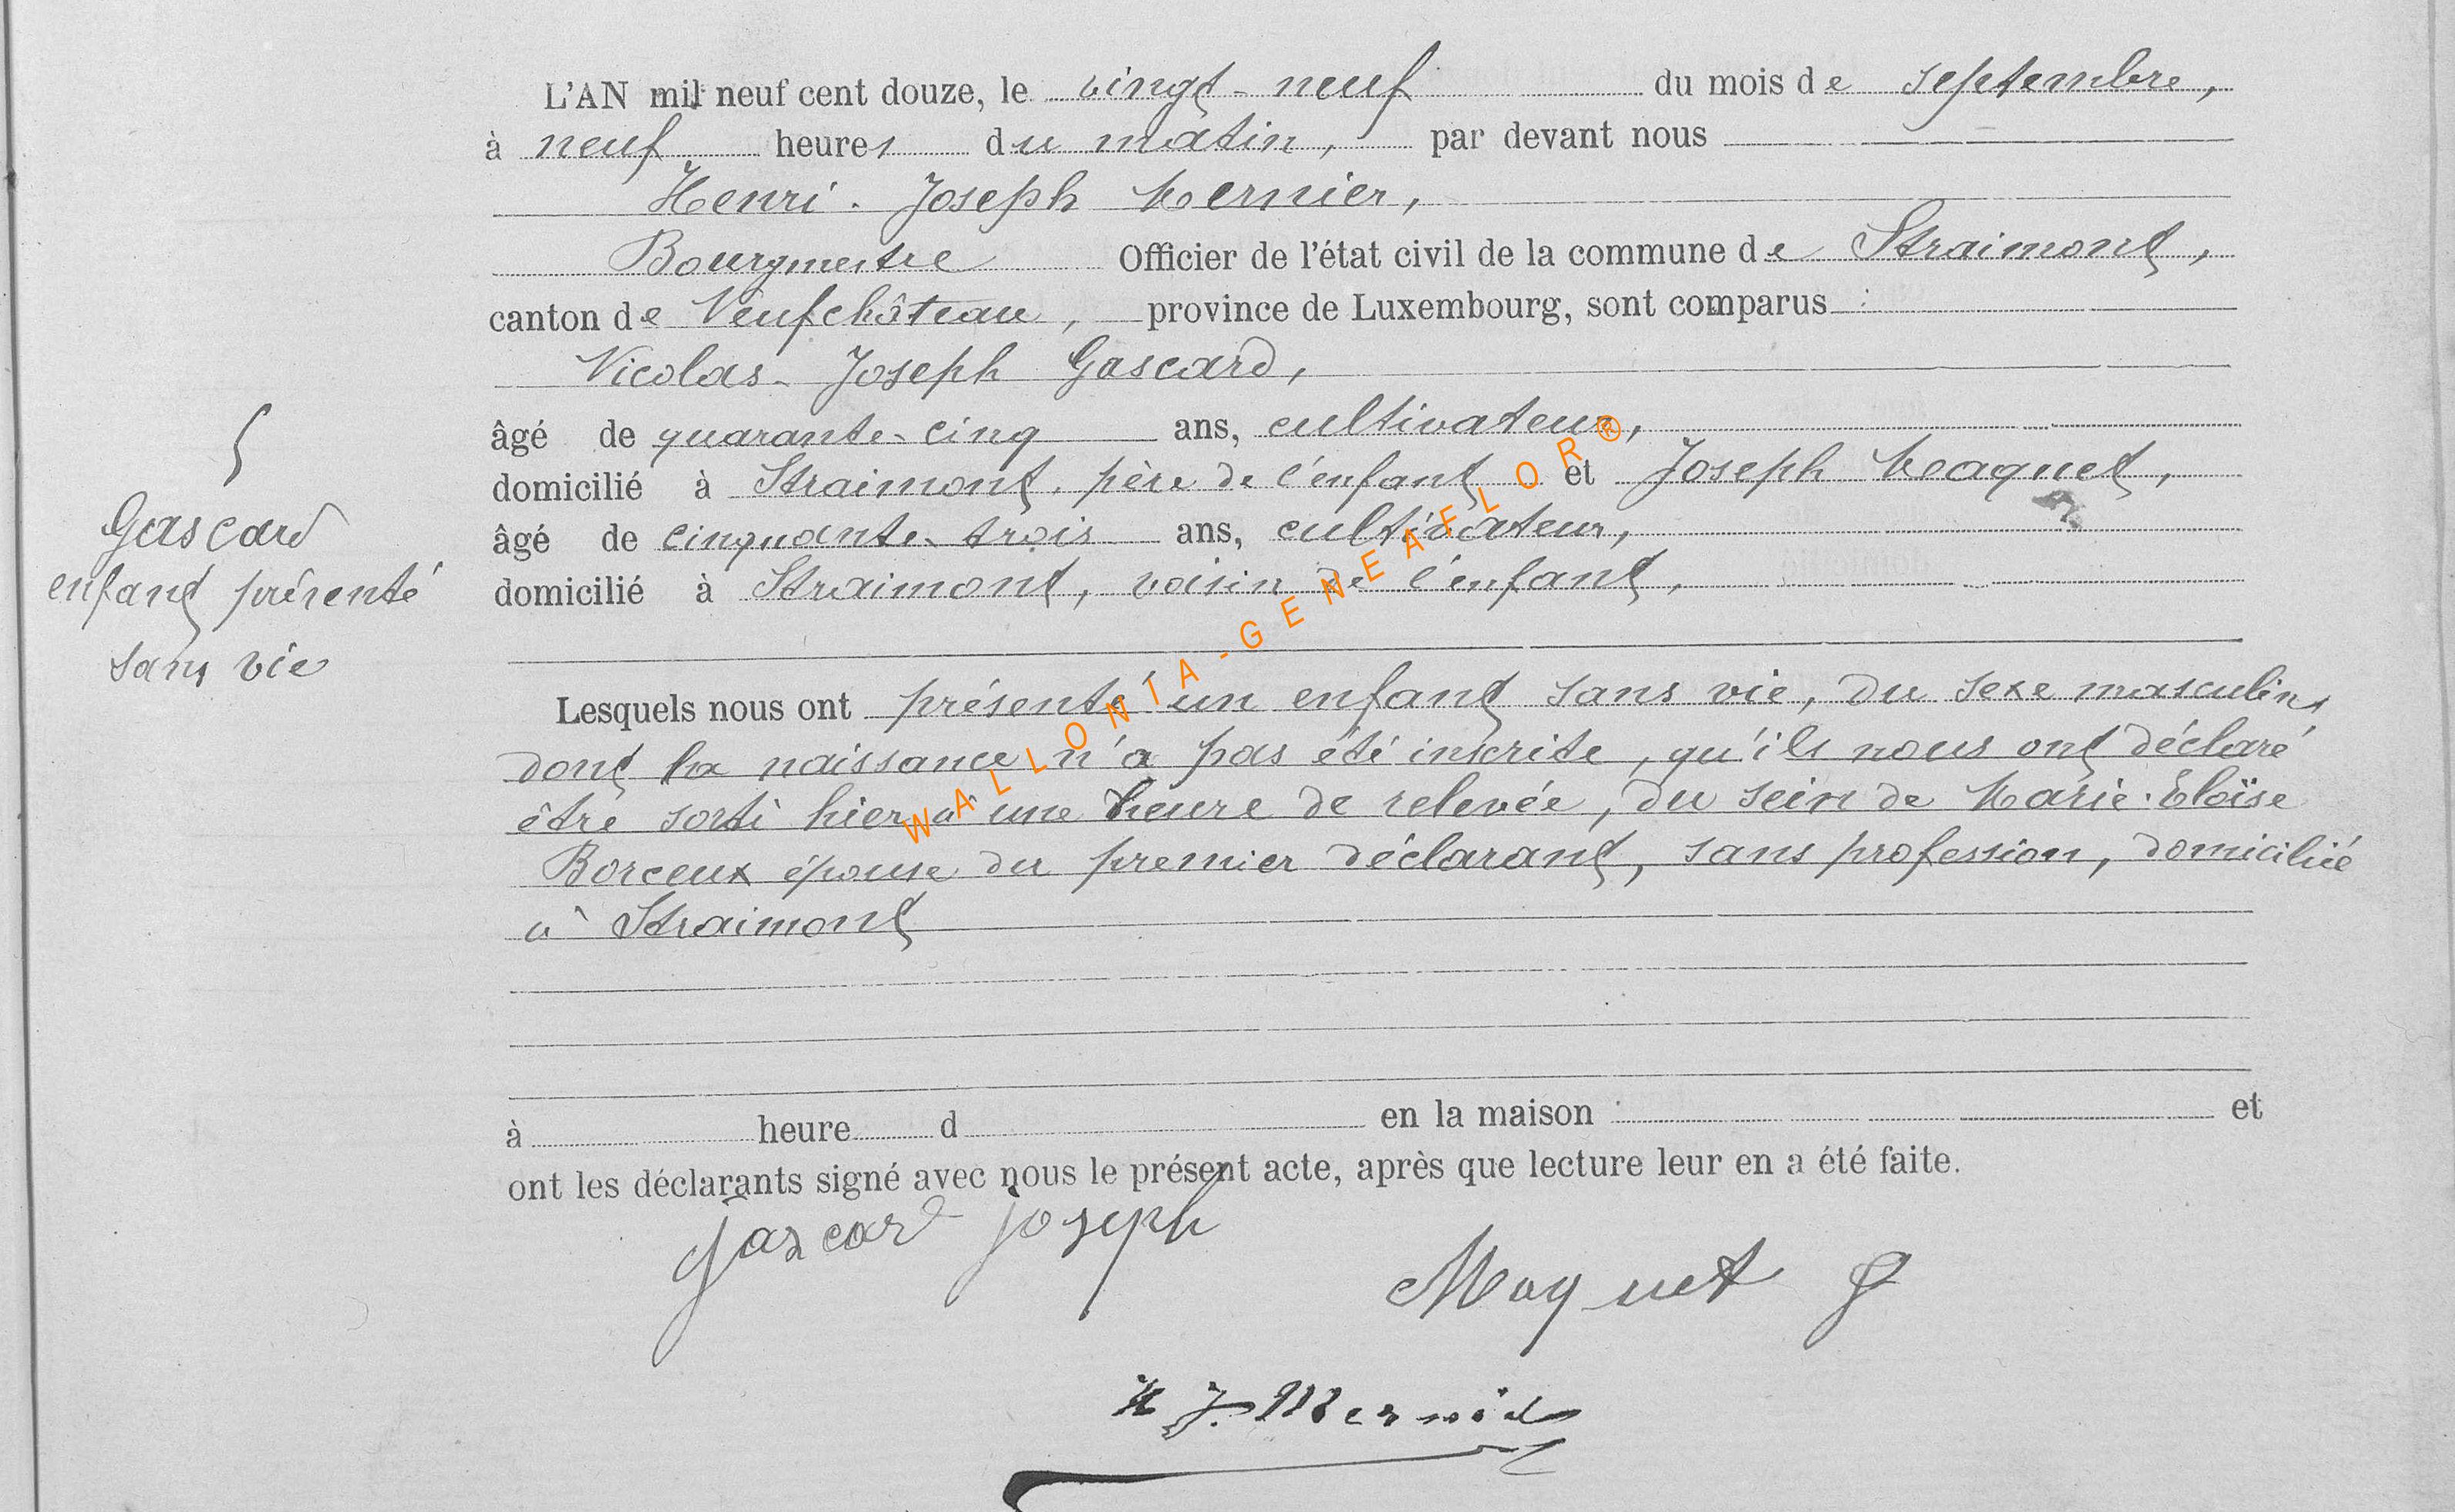 L'AN mil neuf cent douze, le vingt-neuf du mois de septembre,
à neuf heures du matin, par devant nous
Henri-Joseph Mernier,
Bourgmestre Officier de l'état civil de la commune de Straimont,
canton de Neufchâteau, province de Luxembourg, sont comparus :
Nicolas-Joseph Gascard,
âgé de quarante-cinq ans, cultivateur,
domicilié à Straimont, père de l'enfant et Joseph Maquet,
âgé de cinquante-trois ans, cultivateur,
domicilié à Straimont, voisin de l'enfant,
5
Gascard
enfant présenté
sans vie
Lesquels nous ont présenté un enfant sans vie, du sexe masculin,
dont la naissance n'a pas été inscrite, qu'ils nous ont déclaré
être sorti hier à une heure de relevée, du sein de Marie-Eloïse
Borceux épouse du premier déclarant, sans profession, domiciliée
à Straimont
à heure d en la maison et
ont les déclarants signé avec nous le présent acte, après que lecture leur en a été faite.
Gascard Joseph
Maquet J
H J. Mernier
WALLONIA-GENEAFLOR®